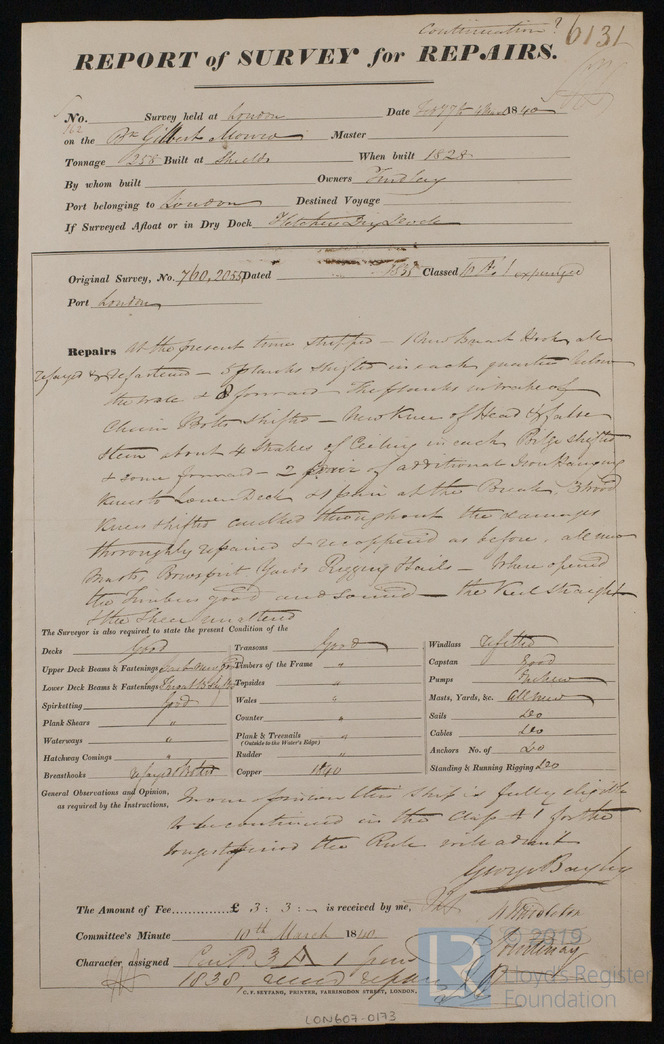 Continuation? 6131
REPORT of SURVEY for REPAIRS.
No. 762 Survey held at London Date 1840
on the Bk Gilbert Munro Master
Tonnage 258 Built at Shields When built 1828
By whom built Owners Findlay
Port belonging to London Destined Voyage
If Surveyed Afloat or in Dry Dock Fletchers Dry Dock
Original Survey, No. 760, 2055 Dated 1838 Classed 10 A.1 expunged
Port London
Repairs at the present time shipped - 1 New Breast Hook, all
refayed & refastened - 5 planks shifted in each quarter below
the wale & 8 forward - The planks in wake of
Chain Bolts shifted - New Knee of Head & false
Stem about 4 strakes of Ceiling in each Bilge shifted
& some forward - 2 pair of additional Iron Hanging
Knees to Lower Deck & 1 pair at the Break, 3 wood
Knees shifted caulked throughout the damages
thoroughly repaired & recoppered as before, all new
Masts, Bowsprit Yards Rigging & Sails - When opened
the Timbers good and sound - the Keel straight
& the Sheer unaltered
The Surveyor is also required to state the present Condition of the
Decks Good
Upper Deck Beams & Fastenings
Lower Deck Beams & Fastenings
Spirketting Good
Plank Shears "
Waterways "
Hatchway Comings "
Breasthooks refayed & bolted
Transoms Good
Timbers of the Frame "
Topsides "
Wales "
Counter "
Plank & Treenails "
(Outside to the Water's Edge)
Rudder "
Copper 1840
Windlass refitted
Capstan Good
Pumps
Masts, Yards, &c. All New
Sails Do
Cables Do
Anchors No. of Do
Standing & Running Rigging Do
General Observations and Opinion, as required by the Instructions,
In our opinion this ship is fully eligible
to be continued in the Class A1 for the
longest period the Rule will admit
George Bayley
The Amount of Fee.............. £ 3 : 3 : - is received by me,
W Middleton
Committee's Minute 10th March 1840
Character assigned
1838,
C. F. SEYFANG, PRINTER, FARRINGDON STREET, LONDON.
LR © 2019
Lloyd's Register
Foundation
LON607-0173